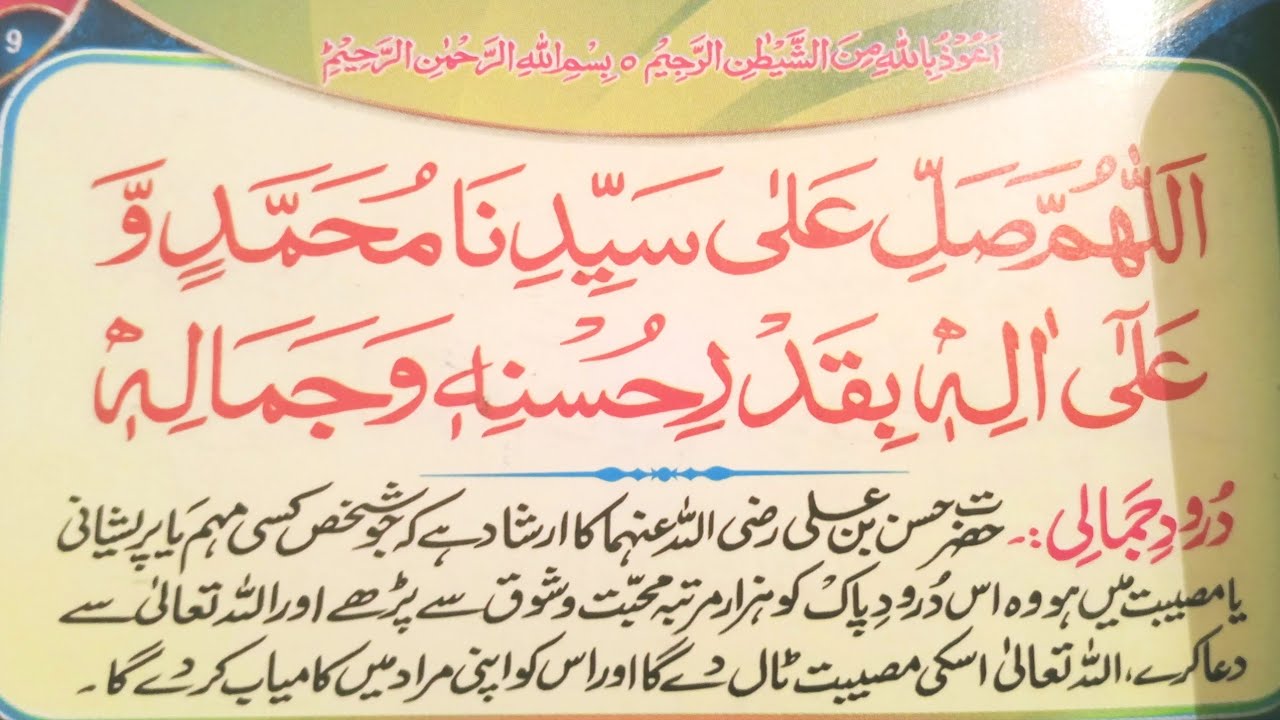 9
اَعُوْذُ بِاللّٰهِ مِنَ الشَّيْطٰنِ الرَّجِيْمِ ○ بِسْمِ اللّٰهِ الرَّحْمٰنِ الرَّحِيْمِ
اَللّٰهُمَّ صَلِّ عَلٰى سَيِّدِنَا مُحَمَّدٍ وَّ
عَلٰٓى اٰلِهٖ بِقَدْرِ حُسْنِهٖ وَجَمَالِهٖ
دُرُودِ جمَالِی :۔ حضرت حسن بن علی رضی اللہ عنہما کا ارشاد ہے کہ جو شخص کسی مہم یا پریشانی
یا مصیبت میں ہو وہ اس دُرودِ پاک کو ہزار مرتبہ محبّت و شوق سے پڑھے اور اللہ تعالیٰ سے
دعا کرے، اللہ تعالیٰ اسکی مصیبت ٹال دے گا اور اس کو اپنی مراد میں کامیاب کر دے گا۔